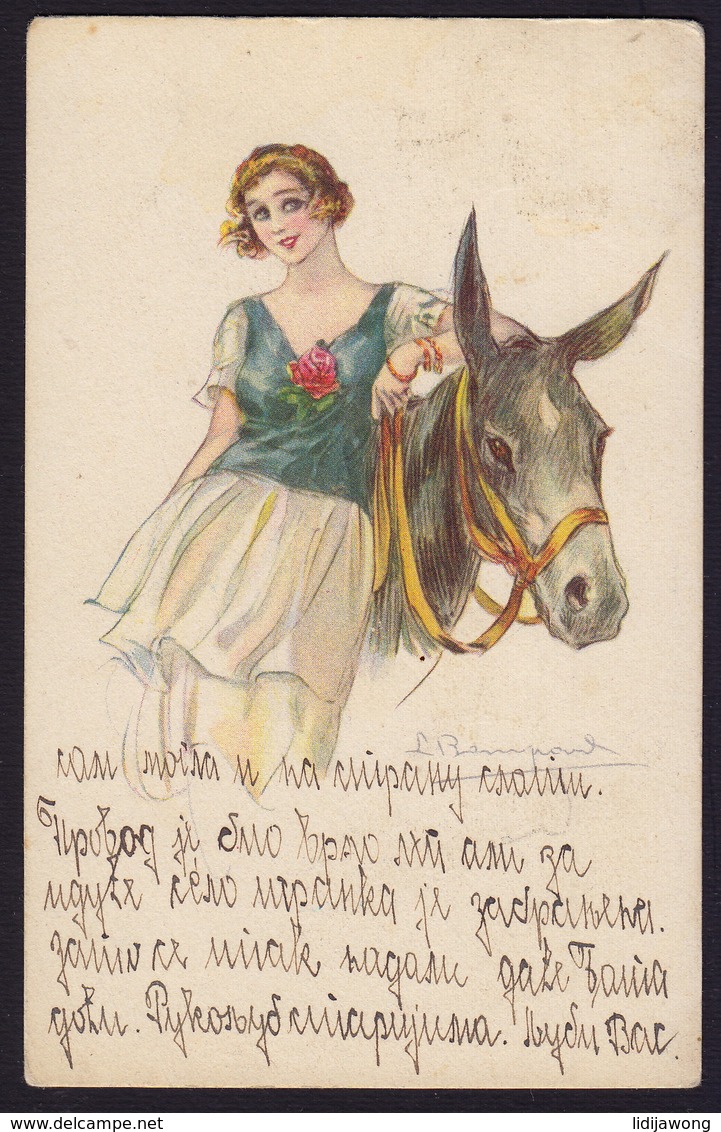 L Bompard
сам могла и на страну слати.
Провод је био врло леп али за
идуће село игранка је забрањена.
зато се ипак надам да ће Ваша
доћи. Рукољуб старијима. Љуби Вас.
delcampe.net
lidijawong